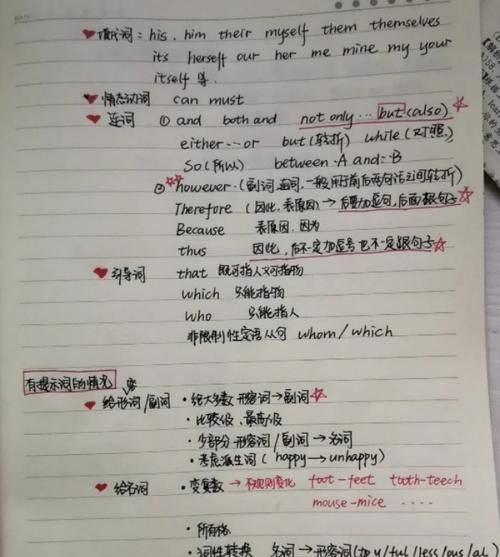 ♥ 代词: his, him their myself them themselves
its herself our her me mine my your
itself 等
♥ 情态动词 can must
♥ 连词 ① and both and not only … but (also) ☆
either … or but (转折) while (对照)
So (所以) between A and B
② ☆☆ however (副词连词, 一般用于前后两句话之间转折)
Therefore (因此, 表原因) → 后要加逗号, 后面跟句子 ☆
Because 表原因, 因为
thus 因此, 后不一定加逗号也不一定跟句子 ☆
♥ 引导词 that 既可指人又可指物
which 只能指物
who 只能指人
非限制性定语从句 whom / which
有提示词的情况
♥ 给形词/副词 · 绝大多数 形容词 → 副词 ☆
· 比较级、最高级
· 少部分 形容词 / 副词 → 名词
· 考虑派生词 ( happy → unhappy )
♥ 给名词 · 变复数 → 不规则变化 foot-feet tooth-teech
mouse-mice ....
· 所有格
· 词性转换 名词 → 形容词 (加 y / ful / less / ous / al )